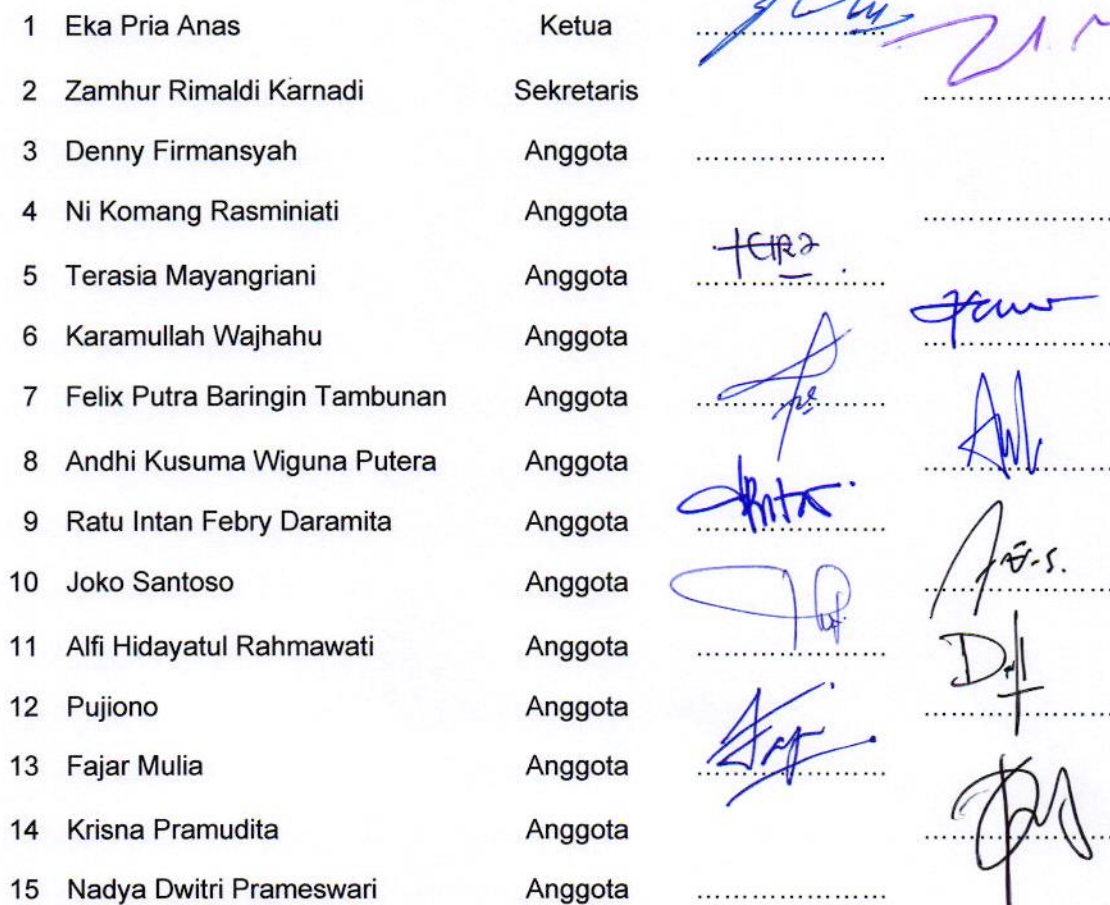 1 Eka Pria Anas Ketua ....................
2 Zamhur Rimaldi Karnadi Sekretaris ....................
3 Denny Firmansyah Anggota ....................
4 Ni Komang Rasminiati Anggota ....................
5 Terasia Mayangriani Anggota ....................
6 Karamullah Wajhahu Anggota ....................
7 Felix Putra Baringin Tambunan Anggota ....................
8 Andhi Kusuma Wiguna Putera Anggota ....................
9 Ratu Intan Febry Daramita Anggota ....................
10 Joko Santoso Anggota ....................
11 Alfi Hidayatul Rahmawati Anggota ....................
12 Pujiono Anggota ....................
13 Fajar Mulia Anggota ....................
14 Krisna Pramudita Anggota ....................
15 Nadya Dwitri Prameswari Anggota ....................